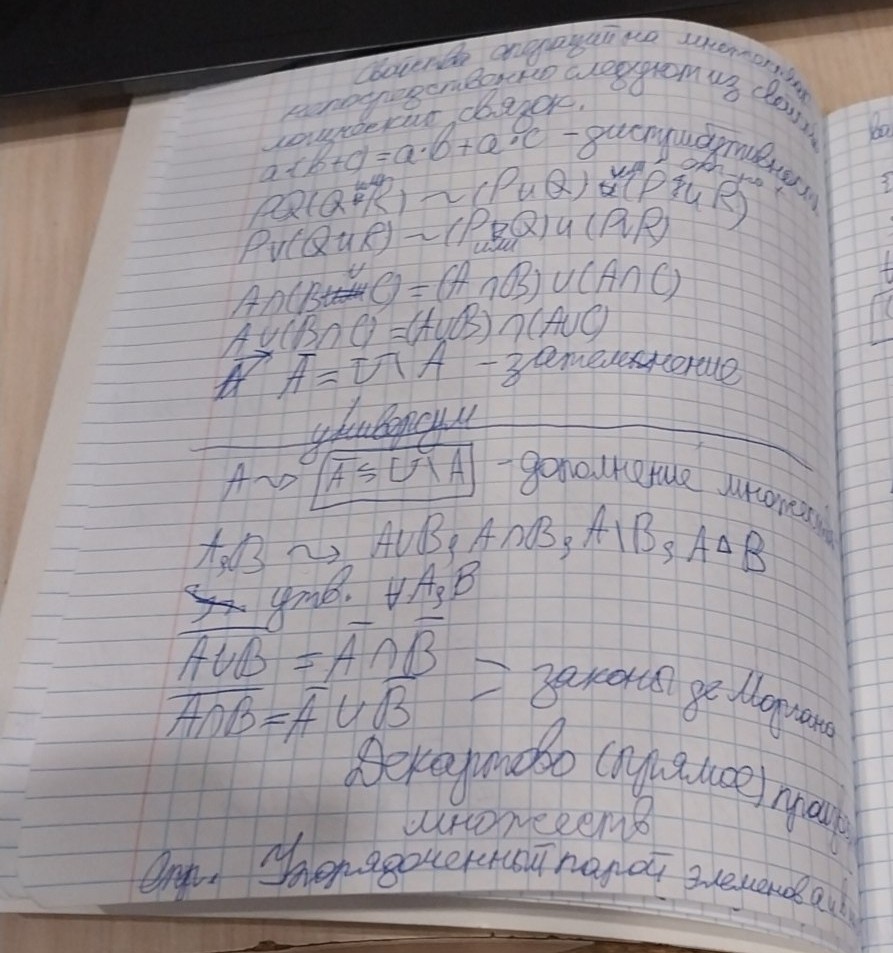 Свойства операций на множествах
непосредственно следуют из свойств
логических связок.
a·(b+c)=a·b+a·c - дистрибутивность
P и (Q или R) ~ (P и Q) или (P и R)
P ∨ (Q и R) ~ (P или Q) и (P ∨ R)
A∩(B∪C) = (A∩B)∪(A∩C)
A∪(B∩C) = (A∪B)∩(A∪C)
Ā = U\A -
универсум
A ⇝ Ā = U\A - дополнение множества
A, B ⇝ A∪B, A∩B, A\B, A△B
утв. ∀A, B
A̅∪̅B̅ = Ā∩B̅
A̅∩̅B̅ = Ā∪B̅ = законы де Моргана
Декартово (прямое)
множеств
Опр. Упорядоченный парой элеменов a и b